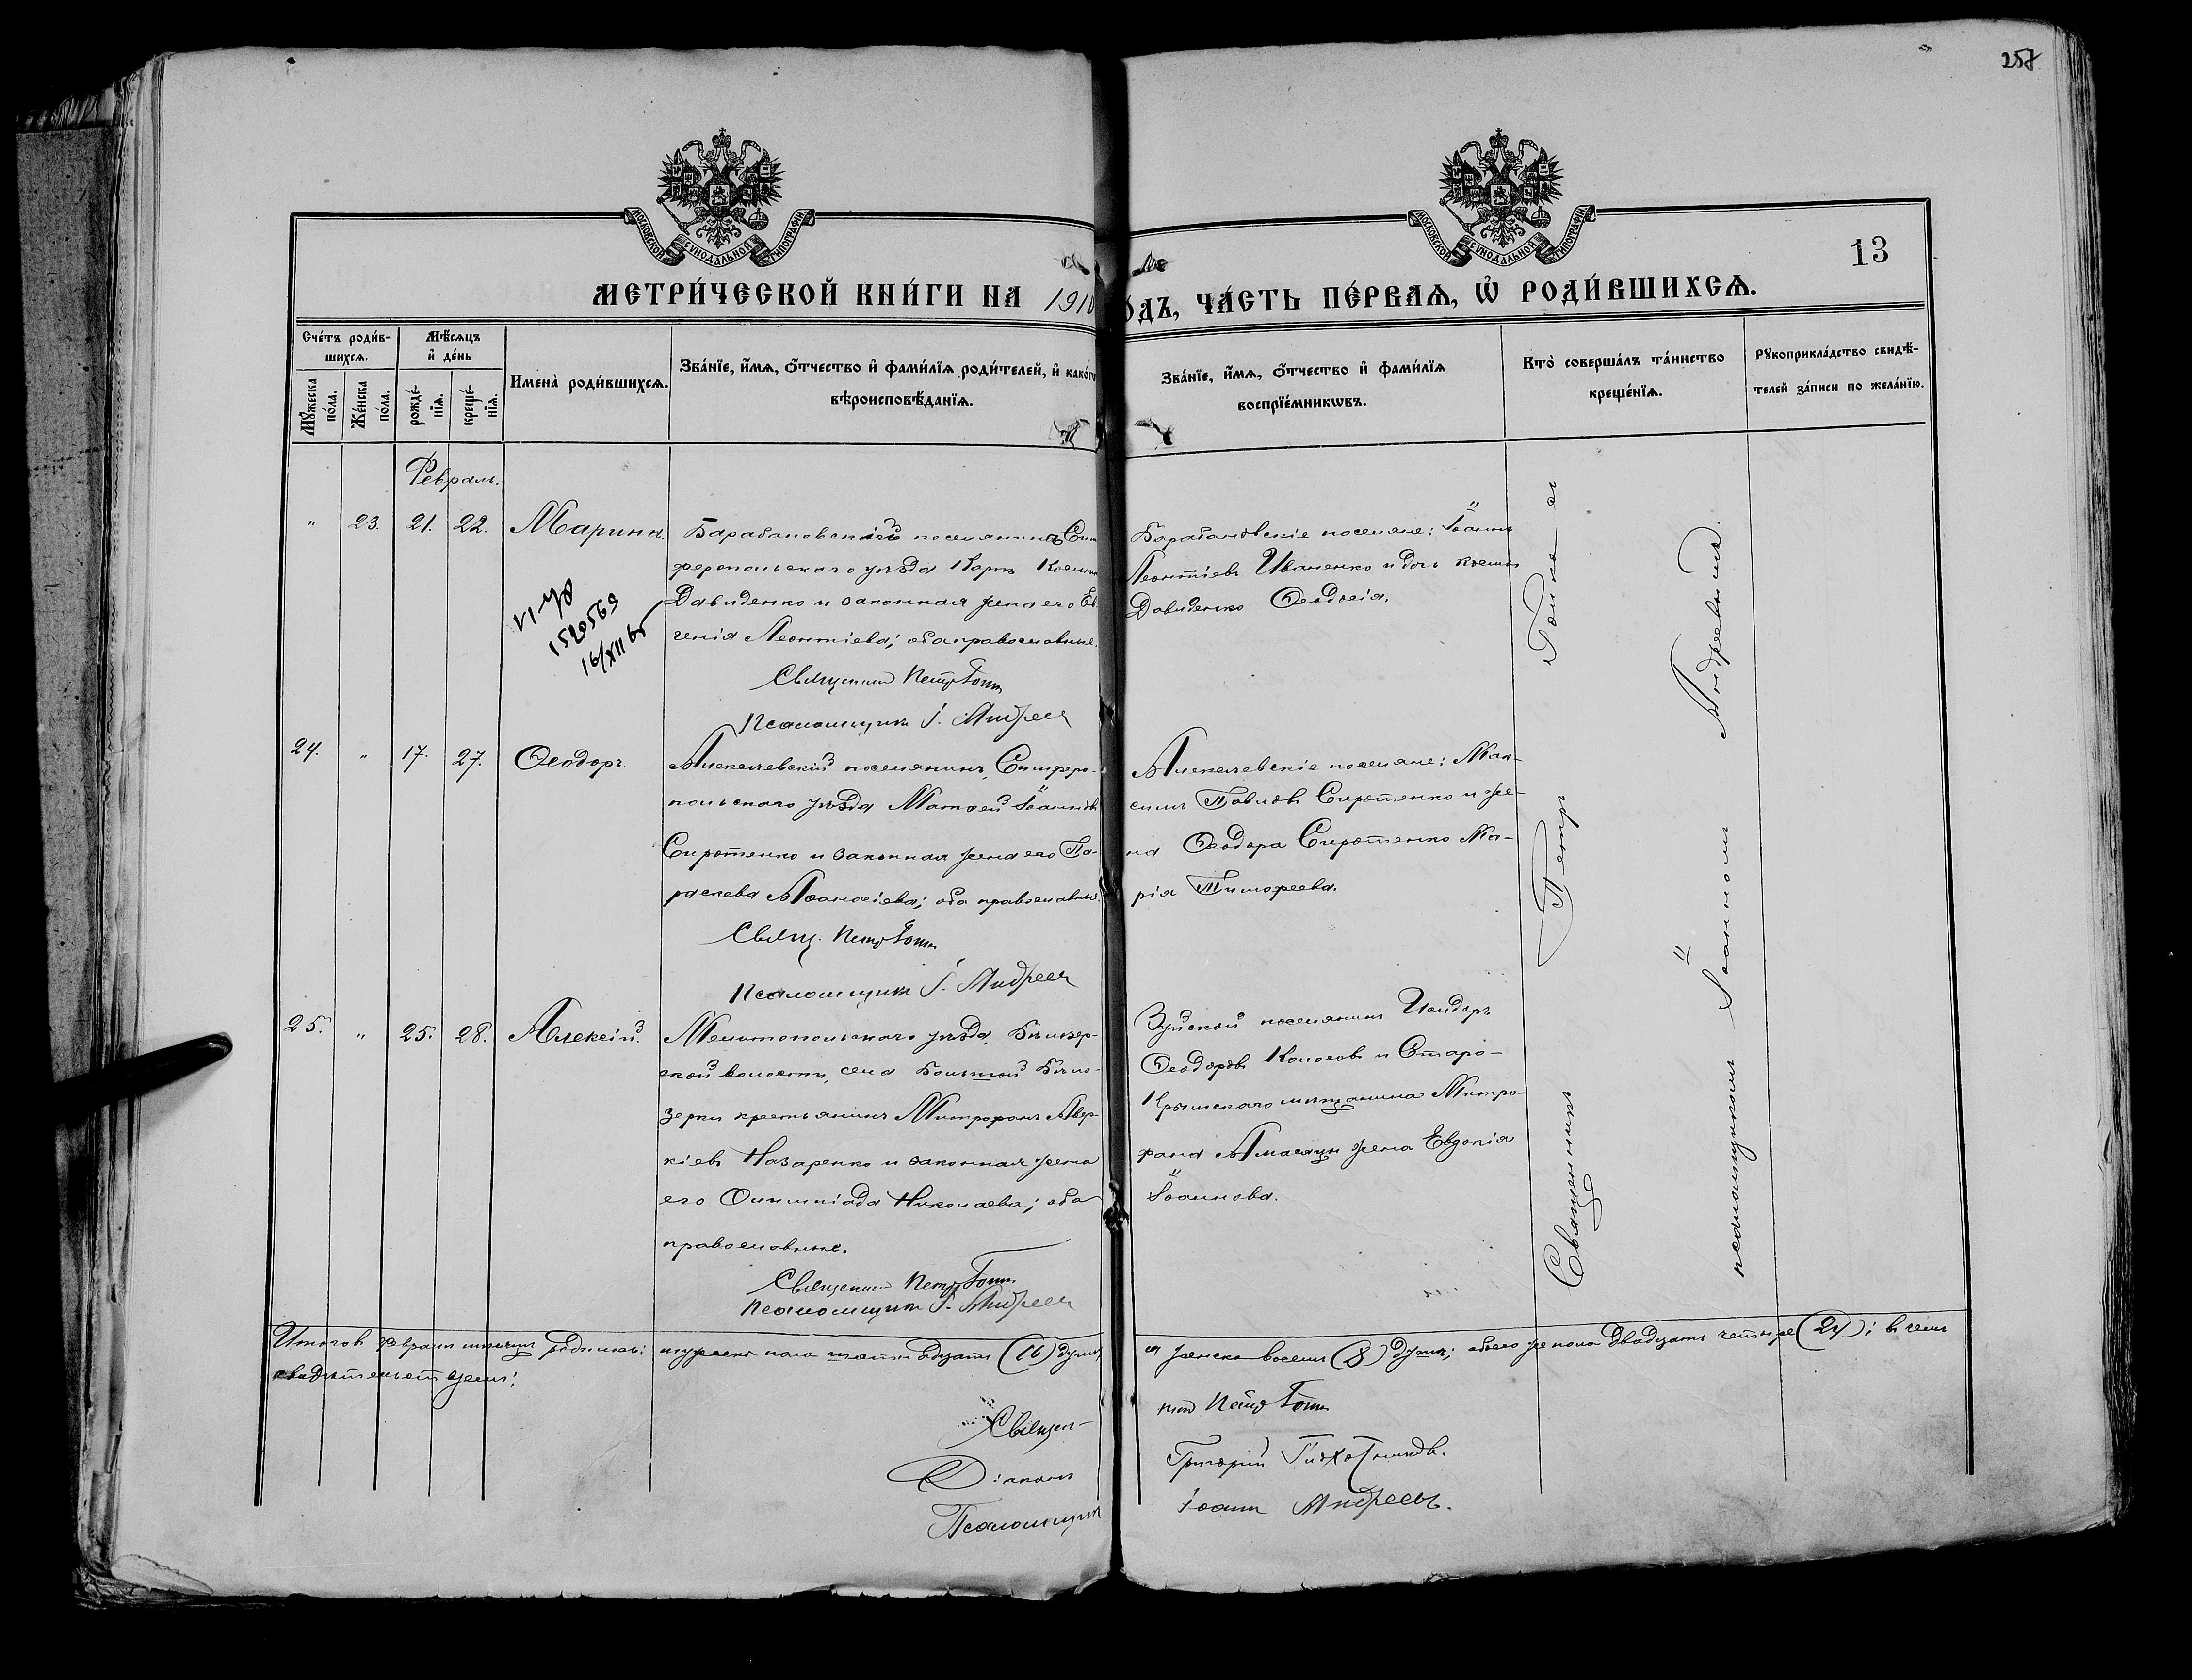 257
МОСКОВСКОЙ СУНОДАЛЬНОЙ ТИПОГРАФІИ
МОСКОВСКОЙ СУНОДАЛЬНОЙ ТИПОГРАФІИ
13
МЕТРИ́ЧЕСКОЙ КНИ́ГИ НА 1910
ОДЪ, ЧА́СТЬ ПЕ́РВАѦ, Ѡ РОДИ́ВШИХСѦ.
Сче́тъ роди́в-
шихсѧ.
Мꙋжеска по́ла.
Же́нска по́ла.
Мѣ́сѧцъ
и҆ де́нь
рожде́-
нїѧ.
креще́-
нїѧ.
Имена̀ роди́вшихсѧ.
Зва́нїе, и҆́мѧ, ѻ҆́тчество и҆ фами́лїѧ роди́телей, и҆ како́гѡ
вѣроисповѣ́данїѧ.
Зва́нїе, и҆́мѧ, ѻ҆́тчество и҆ фами́лїѧ
воспрїе́мникѡвъ.
Кто̀ соверша́лъ та́инство
креще́нїѧ.
Рꙋкоприкла́дство свидѣ́-
телей за́писи по жела́нїю.
Февраль.
" 23. 21. 22. Марина.
Барабановскій поселянинъ Сим
феропольскаго уѣзда Карпъ Косьмин
Давиденко и законная жена его Ев
генія Леонтіева; оба православные.
Священник Петр
Псаломщикъ І. Андреев
Барабановскіе поселяне: Іоаннъ
Леонтіевъ Иваненко и дочь Косьмы
Давиденко Ѳеодосія.
1520565
19/XII 65
24. " 17. 27. Ѳеодоръ.
поселянинъ, Симферо-
польскаго уѣзда Матѳей Іоанновъ
Сиротенко и законная жена его Па-
раскева Аѳанасіева; оба православные.
Свящ. Петр
Псаломщикъ І. Андреев
поселяне: Мак-
симъ Павловъ Сиротенко и же-
на Ѳеодора Сиротенко Ма-
рія Тимофеева.
25. " 25. 28. Алексій.
Мелитопольскаго уѣзда, Бѣлозер-
ской волости, села Большой Бѣло-
зерки крестьянинъ Митрофанъ Авер-
кіевъ Назаренко и законная жена
его Олимпіада Николаева; оба
православные.
Священник Петр
Псаломщикъ І. Андреев
Зуйской поселянинъ Исидоръ
Ѳеодоровъ Колосовъ и Старо-
Крымскаго мѣщанина Митро-
фана жена Евдокія
Іоаннова.
Священникъ Петр
псаломщикомъ Іоанномъ Андреевымъ.
Итого въ февралѣ мѣсяцѣ родилось: мужеска пола шестнадцать (16) душъ,
а женска восемь (8) душъ; обоего же пола двадцать четыре (24); в чемъ
свидѣтельствуемъ:
Священ-
никъ Петр
Діаконъ
Григорій
Псаломщикъ
Іоаннъ Андреевъ.